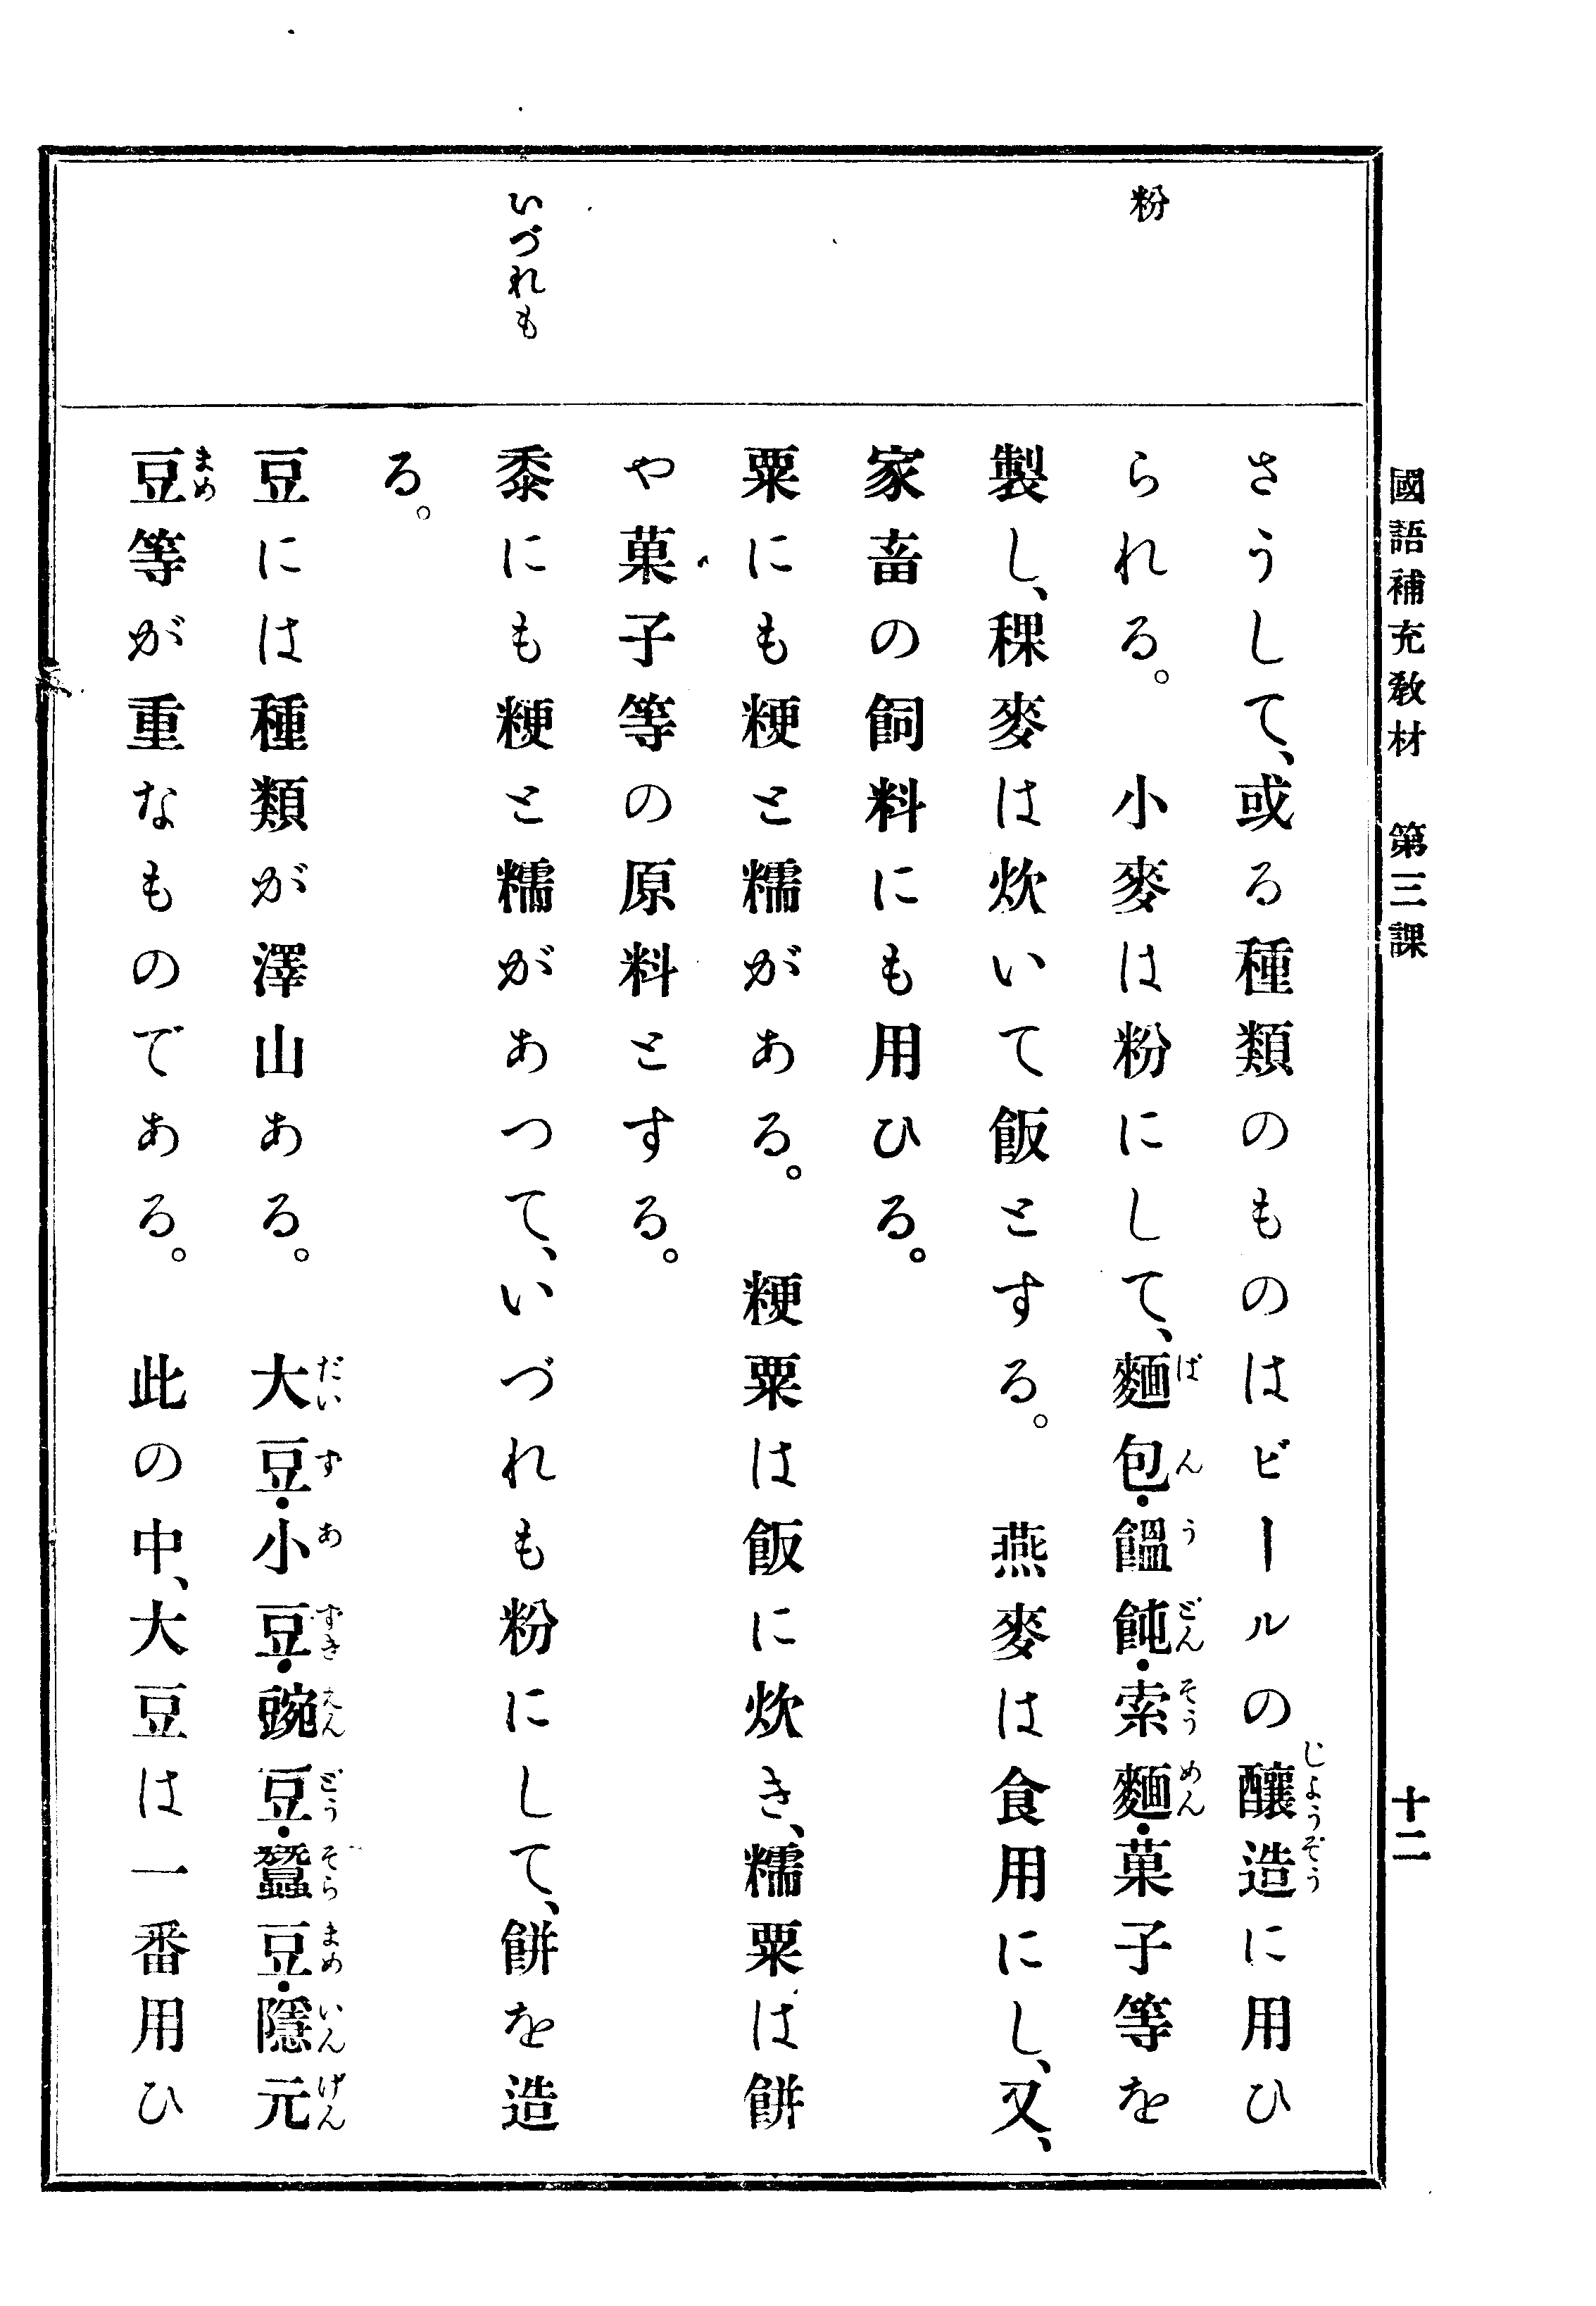 國語補充教材　第三課　十二
粉
いづれも
さうして、或る種類のものはビールの釀造に用ひ
じようぞう
られる。　小麥は粉にして、麵包・饂飩・索麵・菓子等を
ぱんうどんそうめん
製し、稞麥は炊いて飯とする。　燕麥は食用にし、又、
家畜の飼料にも用ひる。
粟にも粳と糯がある。　粳粟は飯に炊き、糯粟は餠
や菓子等の原料とする。
黍にも粳と糯があつて、いづれも粉にして、餠を造
る。
豆には種類が澤山ある。　大豆・小豆・豌豆・蠶豆・隱元
だいずあずきえんどうそらまめいんげん
豆等が重なものである。　此の中、大豆は一番用ひ
まめ